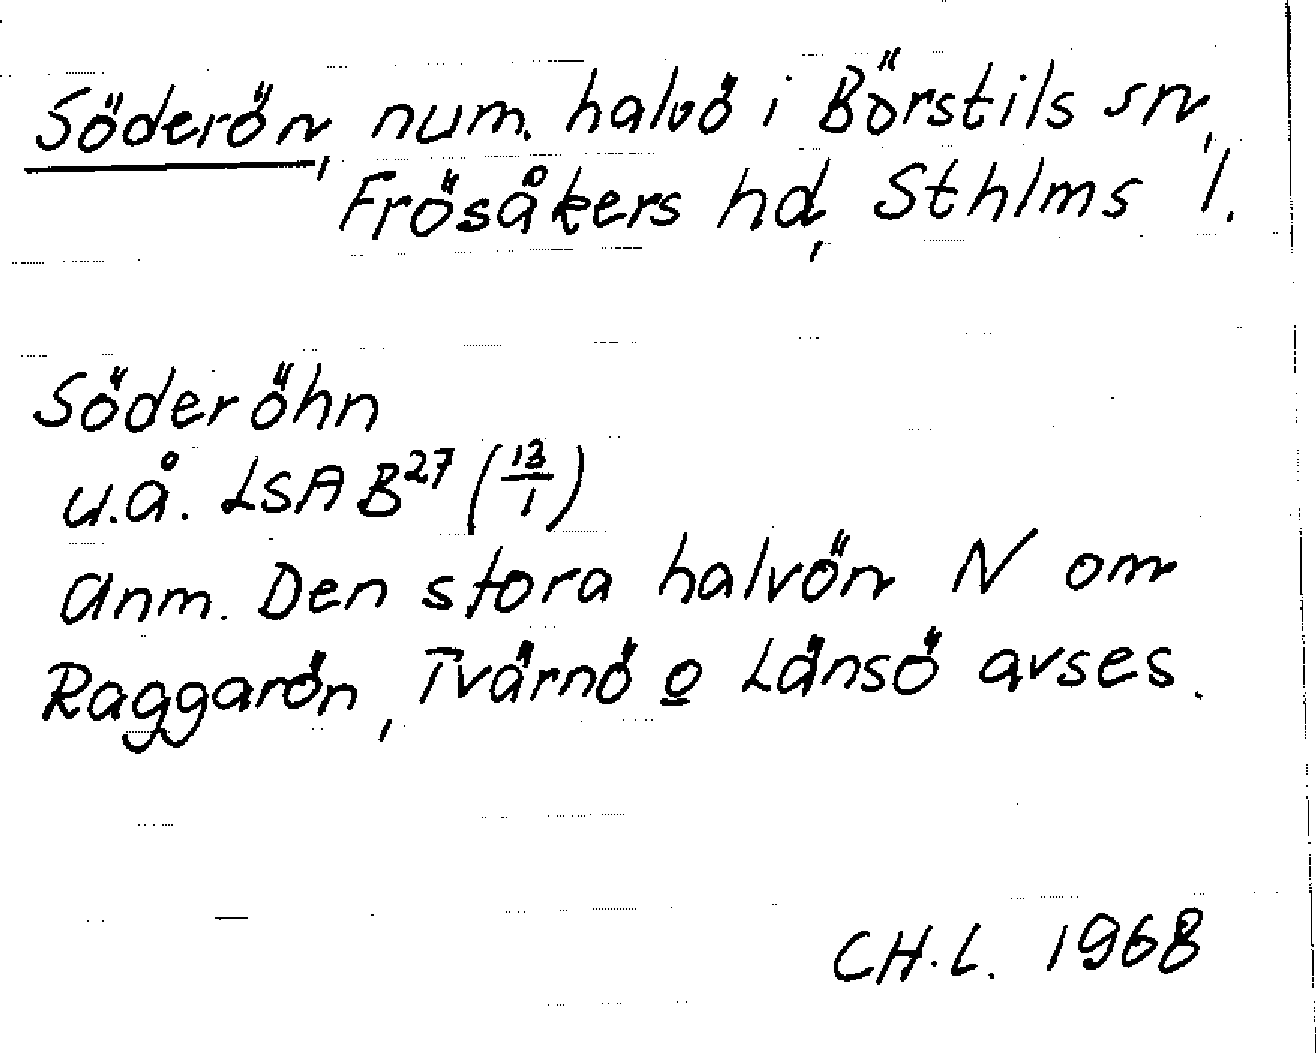 Söderön, num. halvö i Börstils sn,
Frösåkers hd, Sthlms l.
Söderöhn
u.å. LSA B27 (13/1)
Anm. Den stora halvön N om
Raggarön, Tvärnö o Länsö avses.
CH.L. 1968